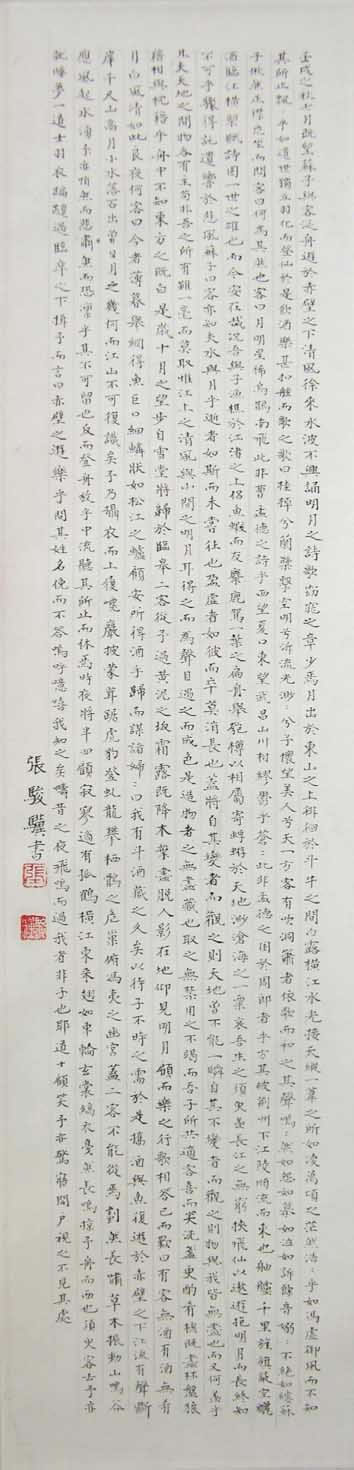 壬戌之秋七月既望蘇子與客泛舟遊於赤壁之下清風徐來水波不興誦明月之詩歌窈窕之章少焉月出於東山之上徘徊於斗牛之間白露橫江水光接天縱一葦之所如凌萬頃之茫然浩浩乎如馮虛御風而不知
其所止飄飄乎如遺世獨立羽化而登仙於是飲酒樂甚扣舷而歌之歌曰桂棹兮蘭槳擊空明兮泝流光渺渺兮予懷望美人兮天一方客有吹洞簫者依歌而和之其聲嗚嗚然如怨如慕如泣如訴餘音嫋嫋不絕如縷蘇
子愀然正襟危坐而問客曰何為其然也客曰月明星稀烏鵲南飛此非曹孟德之詩乎西望夏口東望武昌山川相繆鬱乎蒼蒼此非孟德之困於周郎者乎方其破荊州下江陵順流而東也舳艫千里旌旗蔽空釃
酒臨江橫槊賦詩固一世之雄也而今安在哉況吾與子漁樵於江渚之上侶魚蝦而友麋鹿駕一葉之扁舟舉匏樽以相屬寄蜉蝣於天地渺滄海之一粟哀吾生之須臾羨長江之無窮挾飛仙以遨遊抱明月而長終知
不可乎驟得託遺響於悲風蘇子曰客亦知夫水與月乎逝者如斯而未嘗往也盈虛者如彼而卒莫消長也蓋將自其變者而觀之則天地曾不能一瞬自其不變者而觀之則物與我皆無盡也而又何羨乎
且夫天地之間物各有主苟非吾之所有雖一毫而莫取惟江上之清風與山間之明月耳得之而為聲目遇之而成色是造物者之無盡藏也取之無禁用之不竭而吾與子所共適客喜而笑洗盞更酌肴核既盡杯盤狼
藉相與枕藉乎舟中不知東方之既白是歲十月之望步自雪堂將歸於臨皋二客從予過黃泥之坂霜露既降木葉盡脫人影在地仰見明月顧而樂之行歌相答已而歎曰有客無酒有酒無肴
月白風清如此良夜何客曰今者薄暮舉網得魚巨口細鱗狀如松江之鱸顧安所得酒乎歸而謀諸婦婦曰我有斗酒藏之久矣以待子不時之需於是攜酒與魚復遊於赤壁之下江流有聲斷
岸千尺山高月小水落石出曾日月之幾何而江山不可復識矣予乃攝衣而上履巉巖披蒙茸踞虎豹登虬龍攀栖鶻之危巢俯馮夷之幽宮蓋二客不能從焉劃然長嘯草木振動山鳴谷
應風起水涌予亦悄然而悲肅然而恐凜乎其不可留也反而登舟放乎中流聽其所止而休焉時夜將半四顧寂寥適有孤鶴橫江東來翅如車輪玄裳縞衣戛然長鳴掠予舟而西也須臾客去予亦
就睡夢一道士羽衣蹁躚過臨皋之下揖予而言曰赤壁之遊樂乎問其姓名俛而不答嗚呼噫嘻我知之矣疇昔之夜飛鳴而過我者非子也耶道士顧笑予亦驚寤開戶視之不見其處
張駿驥書